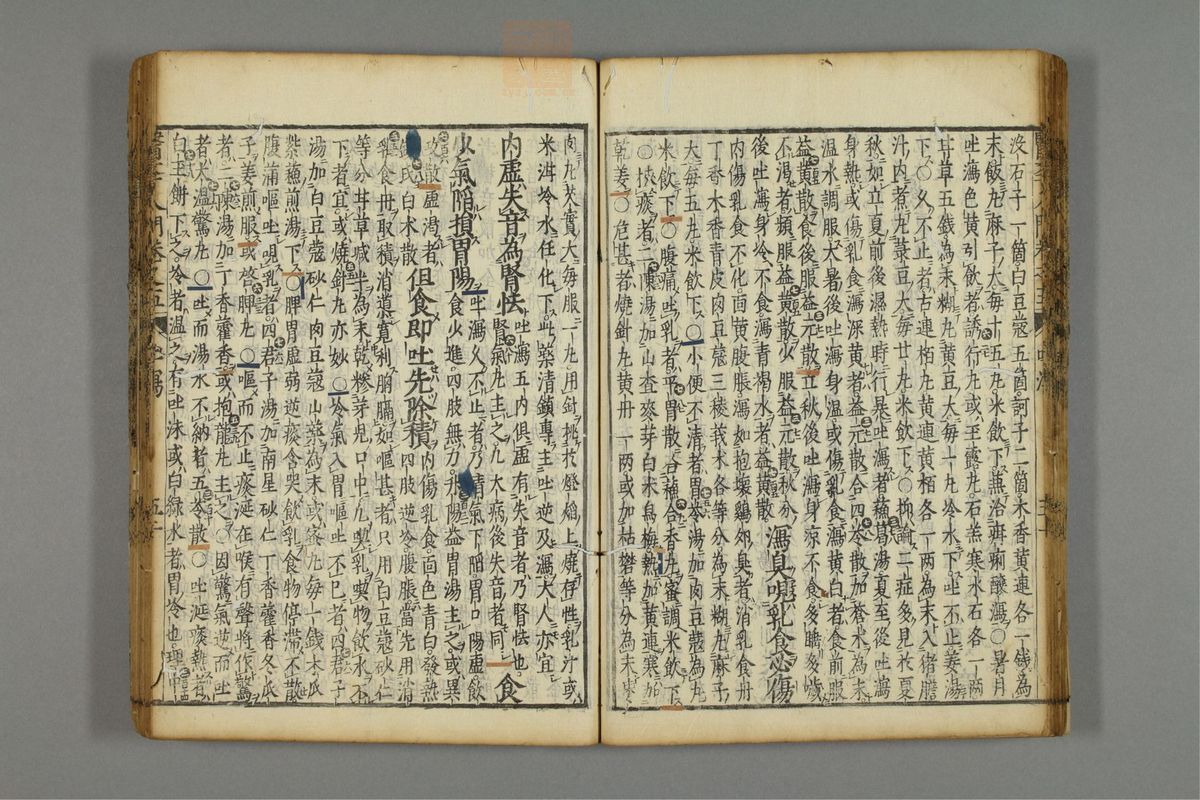 沒石子一箇白豆蔻五箇訶子二箇木香黃連各一錢為
末飯丸麻子大每十五丸米飲下兼治疳痢釀瀉○暑月
吐瀉色黃引飲者誘行丸或至露丸石羔寒水石各一兩
甘草五錢為末糊丸黃豆大每十一丸冷水下吐不止姜湯
下久不止者古連栢丸黃連黃栢各一兩為末入猪膽
汁內煮丸菉豆大每廿丸米飲下○抑論二症多見於夏
秋如立夏前後濕熱時行暴吐瀉者
身熱或傷乳食瀉深黃者益元散合四苓散加蒼朮為末
溫水調服大暑後吐瀉身溫或傷乳食瀉黃白者食前服
益黃散食後服益元散立秋後吐瀉身涼不食多睡多噦
不渴者頻服益黃散少服益元散秋分
後吐瀉身冷不食瀉青褐水者益黃散 瀉臭吮乳食悉傷
內傷乳食不化面黃腹脹瀉如抱壞鷄卵臭者消乳食丹
丁香木香青皮肉豆蔻三稜莪朮各等分為末糊丸麻子
大每五丸米飲下○小便不清者胃苓湯加肉豆蔻為丸
米飲下○腹痛吐乳者平胃散合蘓合香丸蜜調米飲下
○挾痰者二陳湯加山查麥芽白朮烏梅熱加黃連寒加
乾姜○危甚者燒針丸黃丹一兩或加枯礬等分為末棗
肉丸芡實大每服一丸用針挑於燈焰上燒存性乳汁或
米泔冷水任化下此藥清鎮專主吐逆及瀉大人亦宜
內虛失音為腎怯 吐瀉五內俱虛有失音者乃腎怯也
腎氣丸主之凡大病後失音者同 食
少氣陷損胃陽 吐瀉久不止者乃清氣下陷胃口陽虛飲
食少進四肢無力升陽益胃湯主之或異
功散虛渴者
錢氏白朮散 但食即吐先除積 內傷乳食面色青白發熱
四肢逆冷腹脹當先用消
乳食丹取積消導寬利胸膈如嘔甚者只用白豆蔻砂仁
等分甘草減半為末乾糝芽兒口中凡吃乳喫物飲水不
下者宜或燒針丸亦妙○冷氣入胃嘔吐不已者四君子
湯加白豆蔻砂仁肉豆蔻山藥為末或蜜丸每一錢木瓜
紫穗煎湯下○脾胃虛弱逆痰含哭飲乳食物停滯不散
腹滿嘔吐吮乳者四君子湯加南星砂仁丁香藿香冬瓜
子姜煎服或啓脾丸○嘔而不止痰涎在喉有聲將作驚
者二陳湯加丁香藿香或抱龍丸主之○因驚氣逆而吐
者大溫驚丸○吐而湯水不納者五苓散○吐涎痰熱者
白玉餅下之冷者溫之有吐沫或白綠水者胃冷也理中